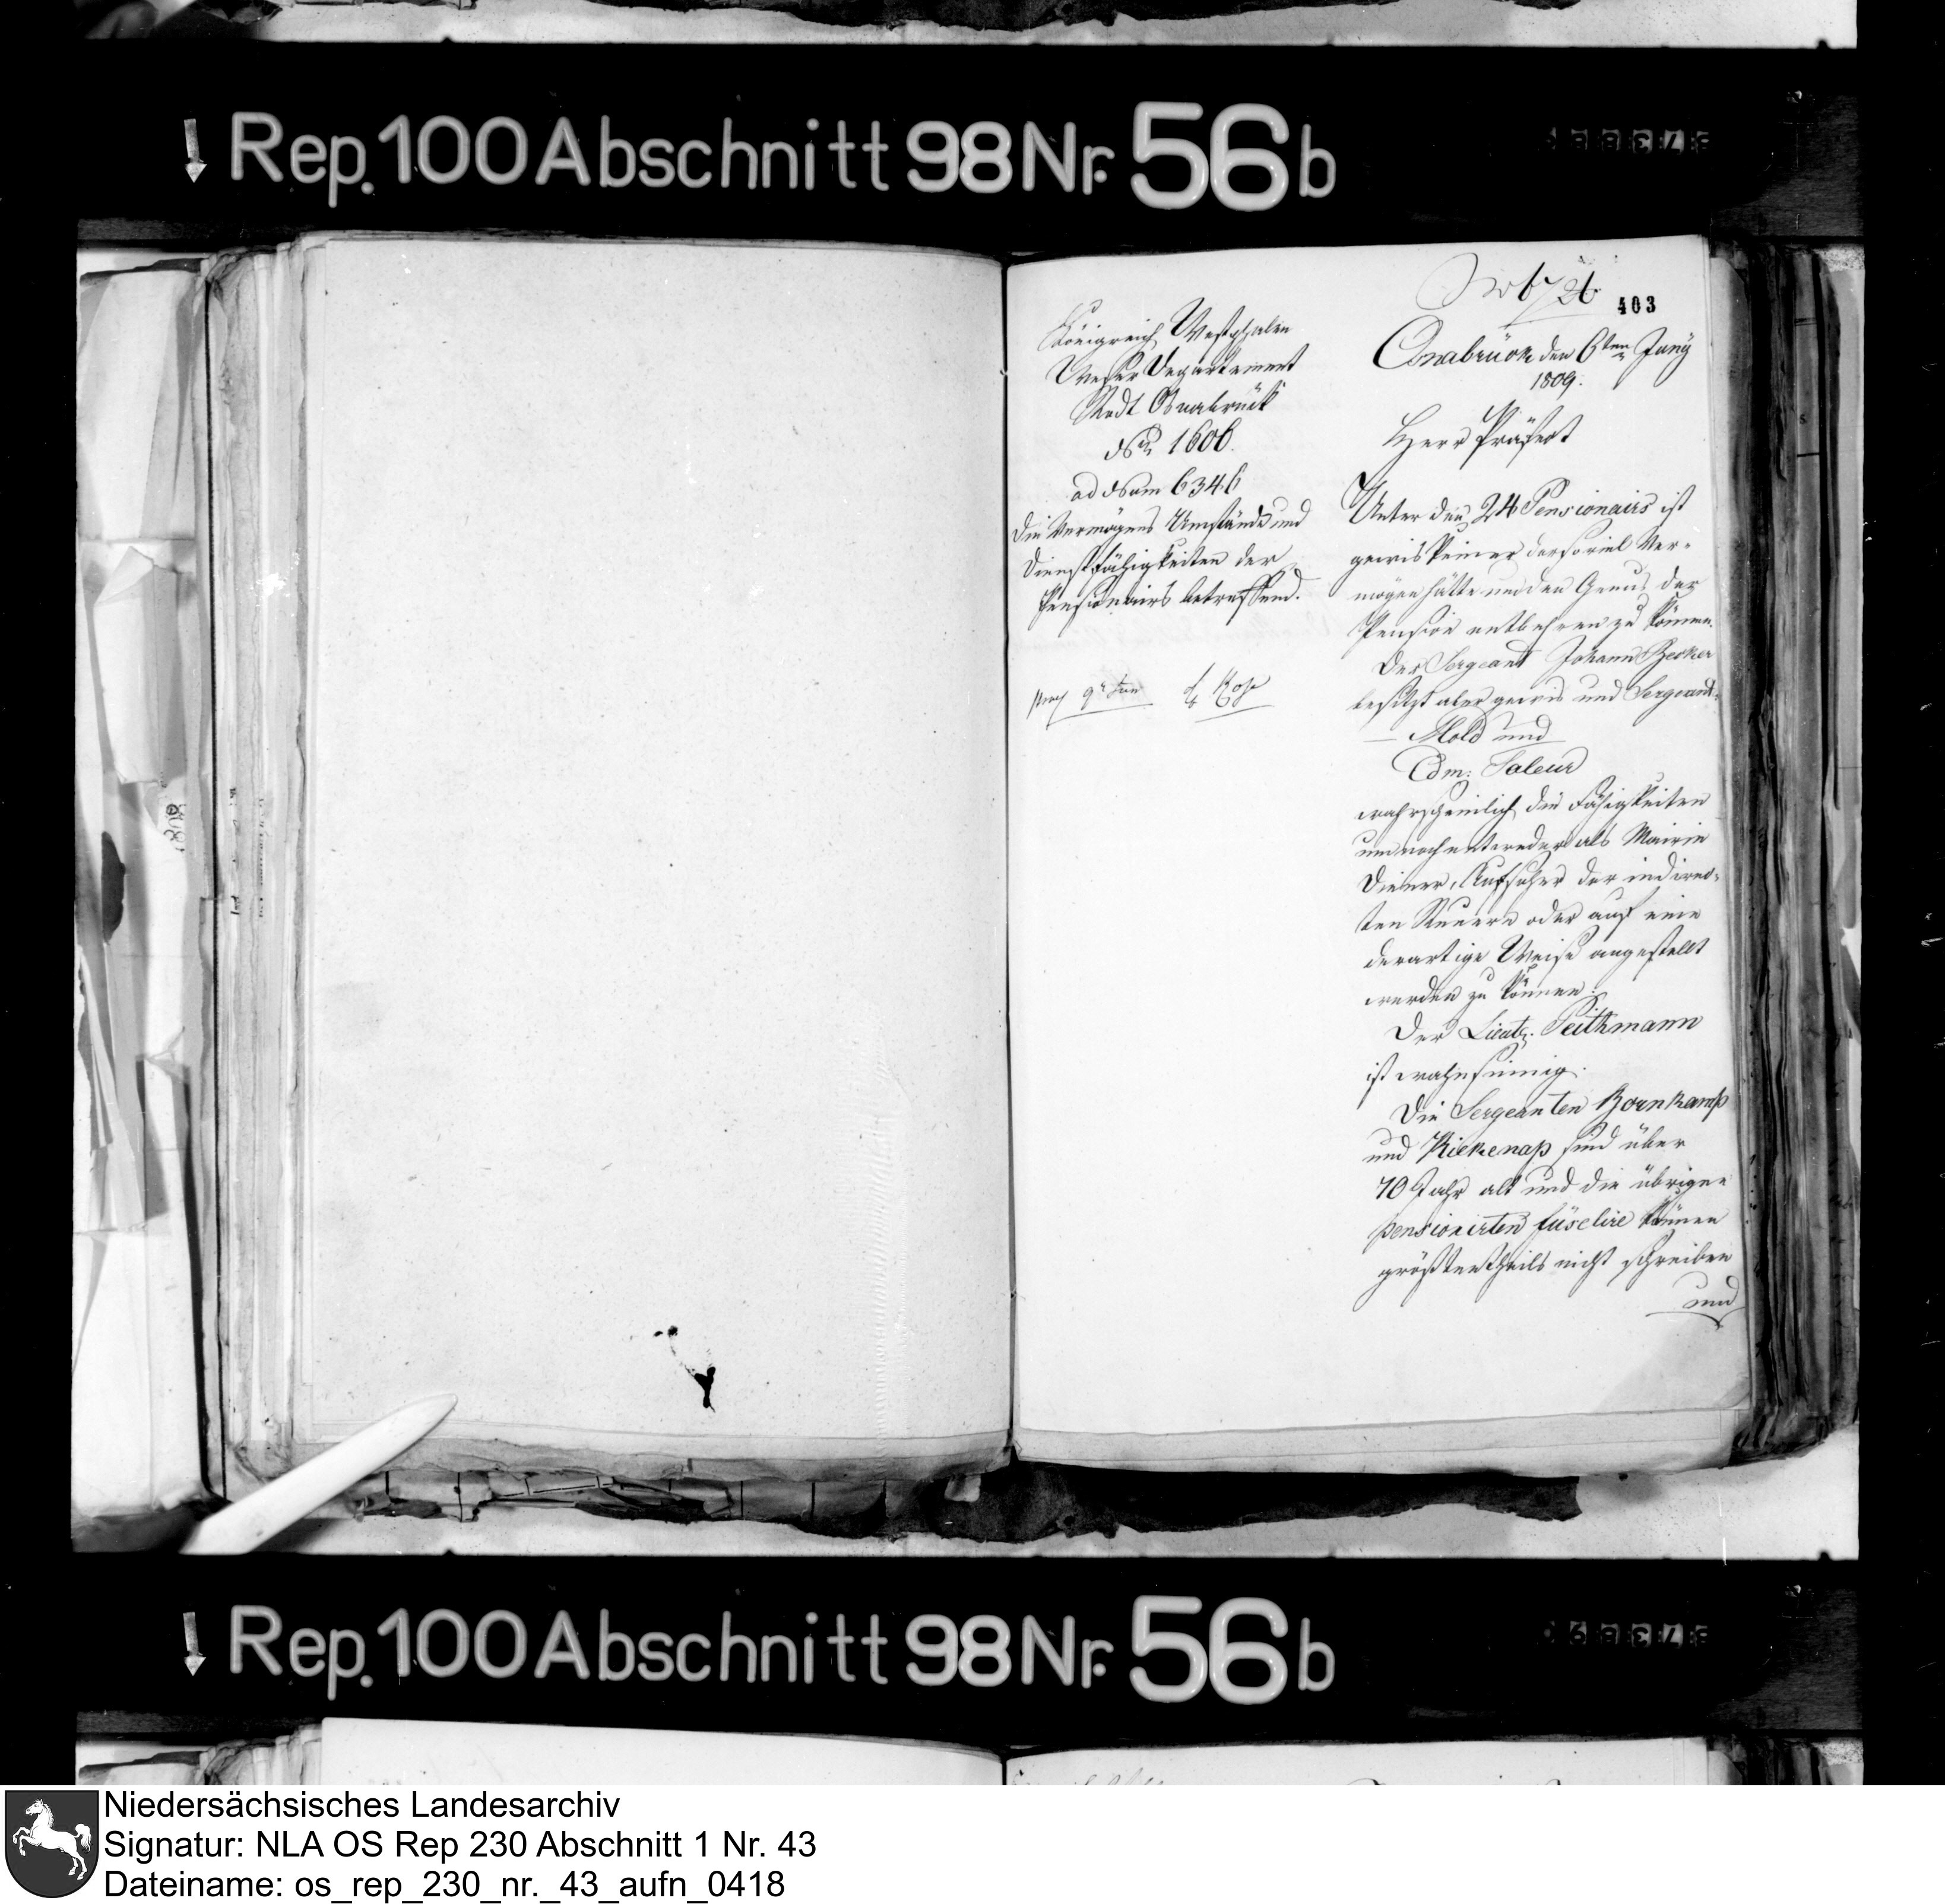 Rep. 100 Abschnitt 98 Nr. 56 b
403
Königreich Westphalen
Weser Departement
Stadt Osnabrück
No 1606.
ad Num 6346
Die Vermögens Umstände und
Dienstfähigkeiten der
Pensionairs betreffend.
Osnabrück den 6ten Juny
1809.
Herr Präfect
Unter den 24 Pensionairs ist
gewis keiner der soviel Ver-
mögen hätte um den Genus der
Pension entbehren zu können.
Der Sergeant Johann Becker
besitzt aber gewis und Sergeant
Mold und
Edm: Saleur
wahrscheinlich die Fähigkeiten
um noch entweder als Mairie
Diener, Aufseher der indirec-
ten Steuern oder auf eine
derartige Weise angestellt
werden zu können.
Der Lieut. Peithmann
ist wahnsinnig.
Die Sergeanten Bornkamp
und Kiekenap sind über
70 Jahr alt und die übrigen
pensionirten füselire können
größtentheils nicht schreiben
und
Rep. 100 Abschnitt 98 Nr. 56 b
Niedersächsisches Landesarchiv
Signatur: NLA OS Rep 230 Abschnitt 1 Nr. 43
Dateiname: os_rep_230_nr._43_aufn_0418